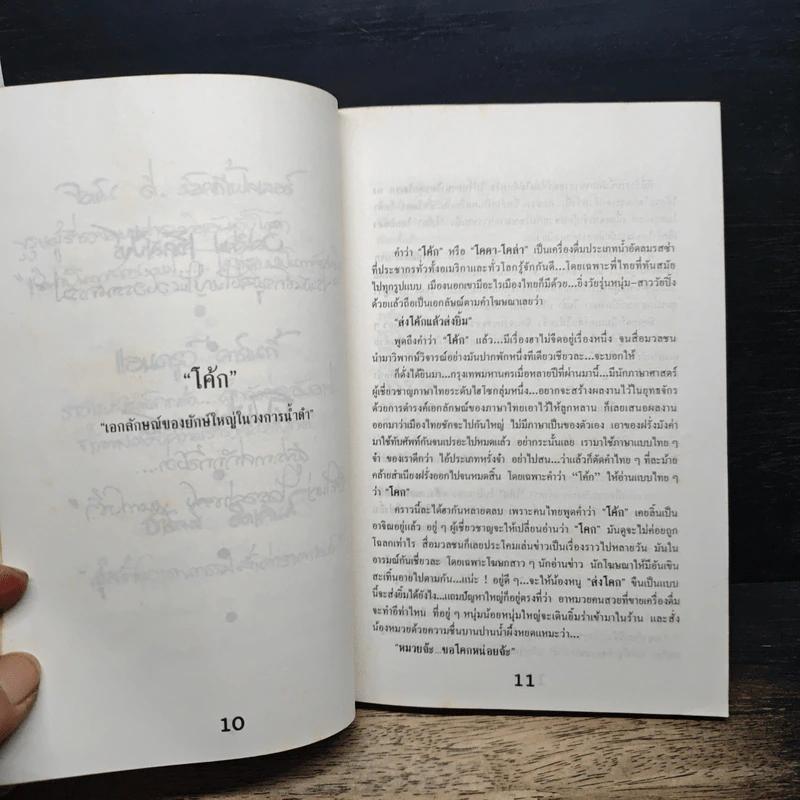 "โค้ก"
"เอกลักษณ์ของยักษ์ใหญ่ในวงการน้ำดำ"
10
คำว่า "โค้ก" หรือ "โคคา-โคล่า" เป็นเครื่องดื่มประเภทน้ำอัดลมรสซ่า
ที่ประชากรทั่วทั้งอเมริกาและทั่วโลกรู้จักกันดี...โดยเฉพาะพี่ไทยที่ทันสมัย
ไปทุกรูปแบบ เมืองนอกเขามีอะไรเมืองไทยก็มีด้วย...ยิ่งวัยรุ่นหนุ่ม-สาววัยปิ๊ง
ด้วยแล้วถือเป็นเอกลักษณ์ตามคำโฆษณาเลยว่า
"ส่งโค้กแล้วส่งยิ้ม"
พูดถึงคำว่า "โค้ก" แล้ว...มีเรื่องฮาไม่จืดอยู่เรื่องหนึ่ง จนสื่อมวลชน
นำมาวิพากษ์วิจารณ์อย่างมันปากพักหนึ่งทีเดียวเชียวละ...จะบอกให้
ก็ดั่งได้ยินมา...กรุงเทพมหานครเมื่อหลายปีที่ผ่านมานี้...มีนักภาษาศาสตร์
ผู้เชี่ยวชาญภาษาไทยระดับไฮโซกลุ่มหนึ่ง...อยากจะสร้างผลงานไว้ในยุทธจักร
ด้วยการดำรงค์เอกลักษณ์ของภาษาไทยเอาไว้ให้ลูกหลาน ก็เลยเสนอผลงาน
ออกมาว่าเมืองไทยชักจะไปกันใหญ่ ไม่มีภาษาเป็นของตัวเอง เอาของฝรั่งมังค่า
มาใช้ทับศัพท์กันจนเปรอะไปหมดแล้ว อย่ากระนั้นเลย เรามาใช้ภาษาแบบไทย ๆ
จ๋า ของเราดีกว่า ไอ้ประเภทหรั่งจ๋า อย่าไปสน...ว่าแล้วก็ตัดคำไทย ๆ ที่ละม้าย
คล้ายสำเนียงฝรั่งออกไปจนหมดสิ้น โดยเฉพาะคำว่า "โค้ก" ให้อ่านแบบไทย ๆ
ว่า "โคก"
คราวนี้ละได้ฮากันหลายตลบ เพราะคนไทยพูดคำว่า "โค้ก" เคยลิ้นเป็น
อาจิณอยู่แล้ว อยู่ ๆ ผู้เชี่ยวชาญจะให้เปลี่ยนอ่านว่า "โคก" มันดูจะไม่ค่อยถูก
โฉลกเท่าไร่ สื่อมวลชนก็เลยประโคมเล่นข่าวเป็นเรื่องราวไปหลายวัน มันใน
อารมณ์กันเชียวละ โดยเฉพาะโฆษกสาว ๆ นักอ่านข่าว นักโฆษณาให้มีอันเขิน
สะเทิ้นอายไปตามกัน...แน่ะ ! อยู่ดี ๆ...จะให้น้องหนู "ส่งโคก" ขืนเป็นแบบ
นี้จะส่งยิ้มได้ยังไง...แถมปัญหาใหญ่ก็อยู่ตรงที่ว่า อาหมวยคนสวยที่ขายเครื่องดื่ม
จะทำอีท่าไหน ที่อยู่ ๆ หนุ่มน้อยหนุ่มใหญ่จะเดินยิ้มร่าเข้ามาในร้าน และสั่ง
น้องหมวยด้วยความชื่นบานปานน้ำผึ้งหยดแหมะว่า...
"หมวยจ๊ะ...ขอโคกหน่อยจ้ะ"
11